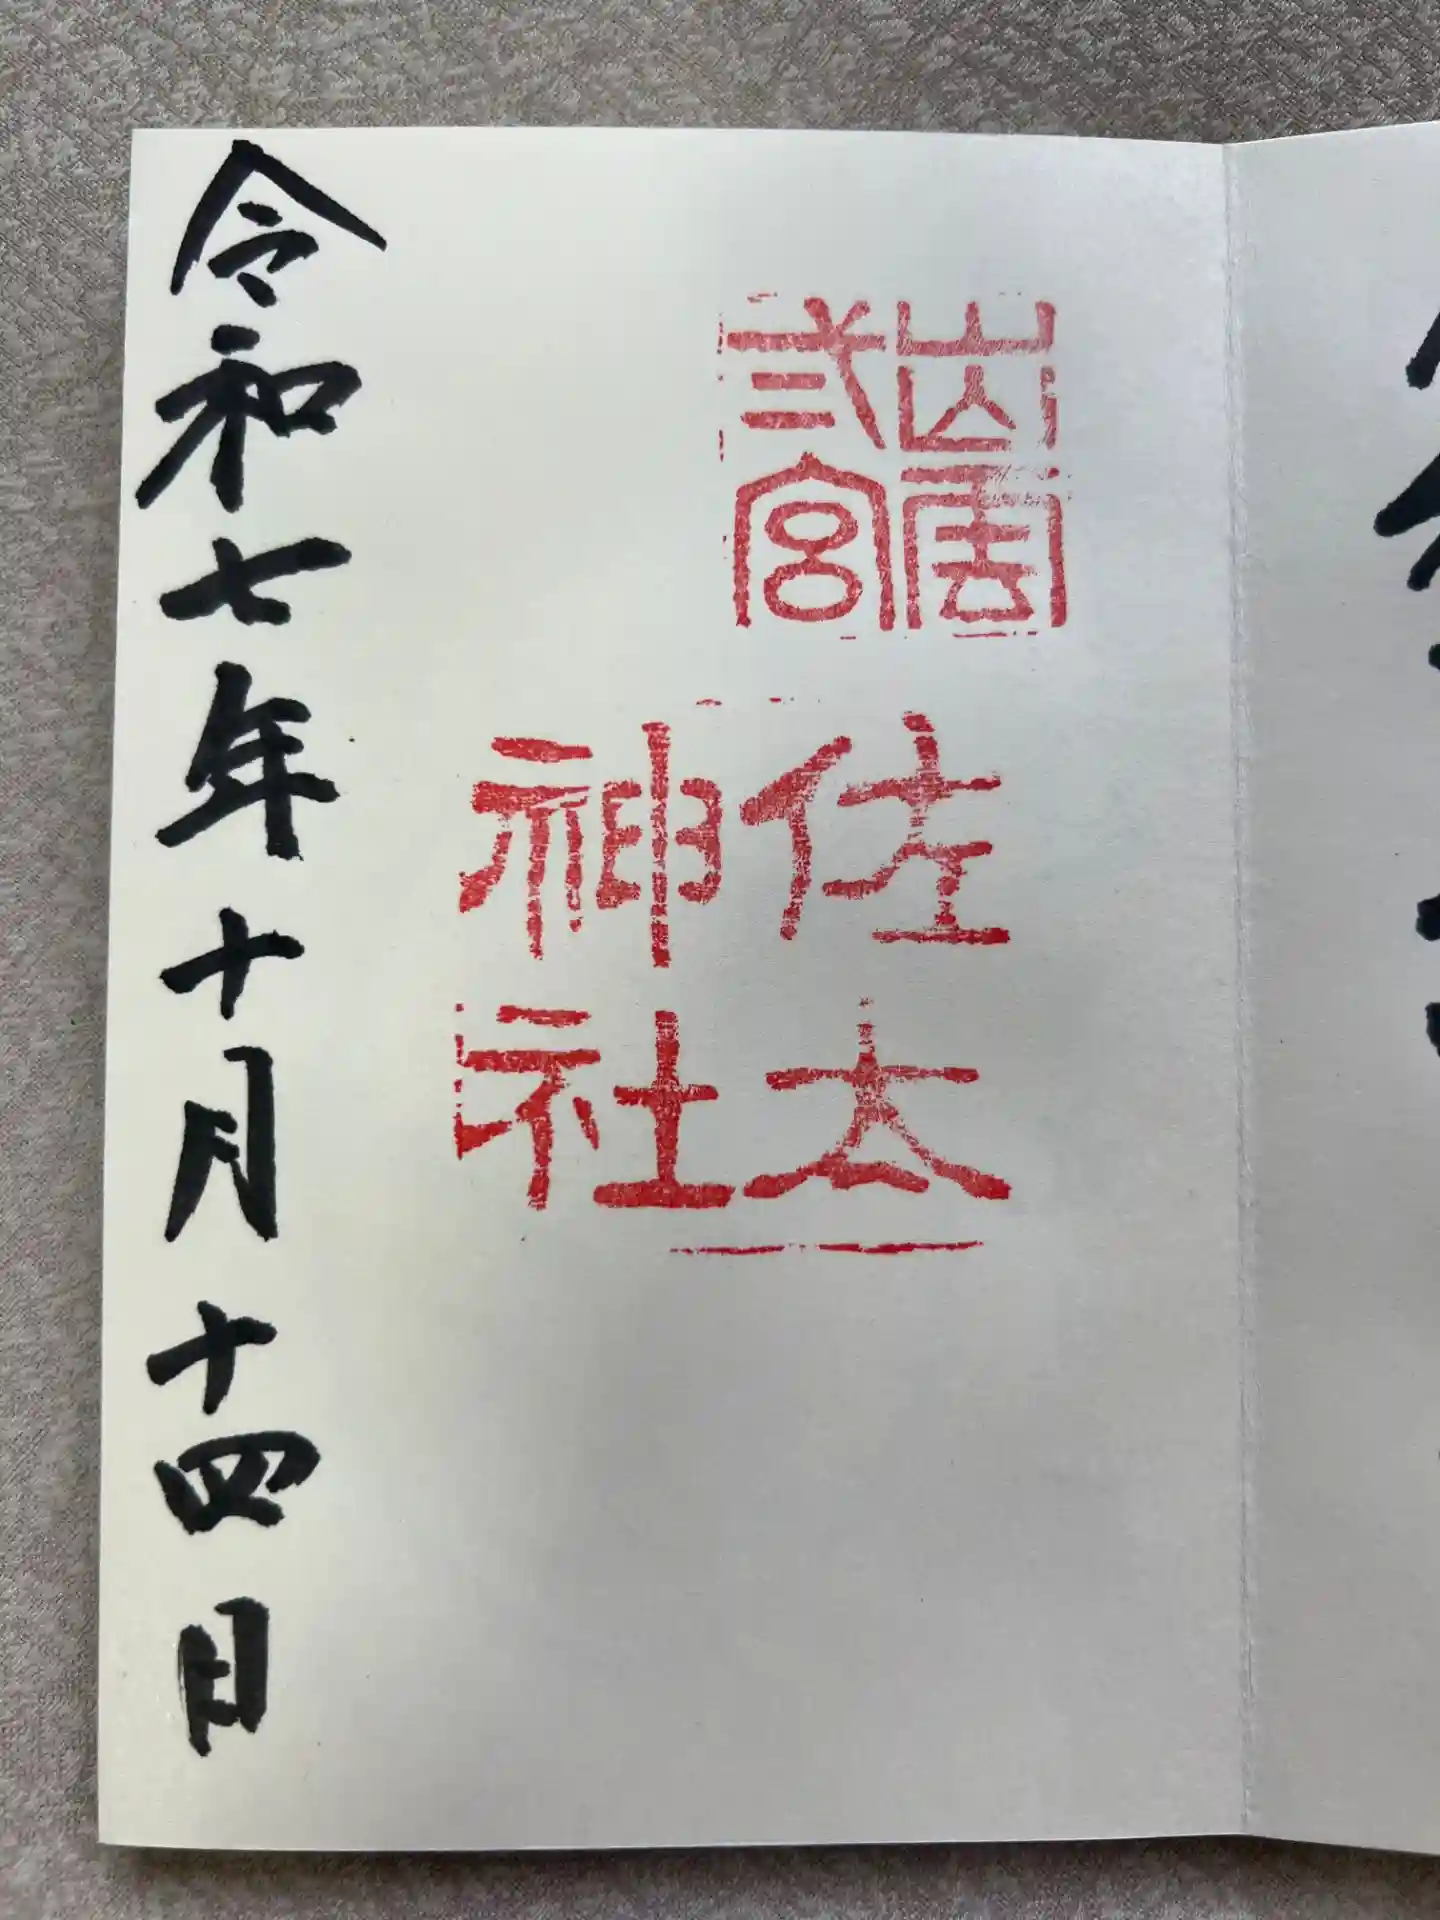 出雲
弎宮
佐太
神社
令和七年十月十四日